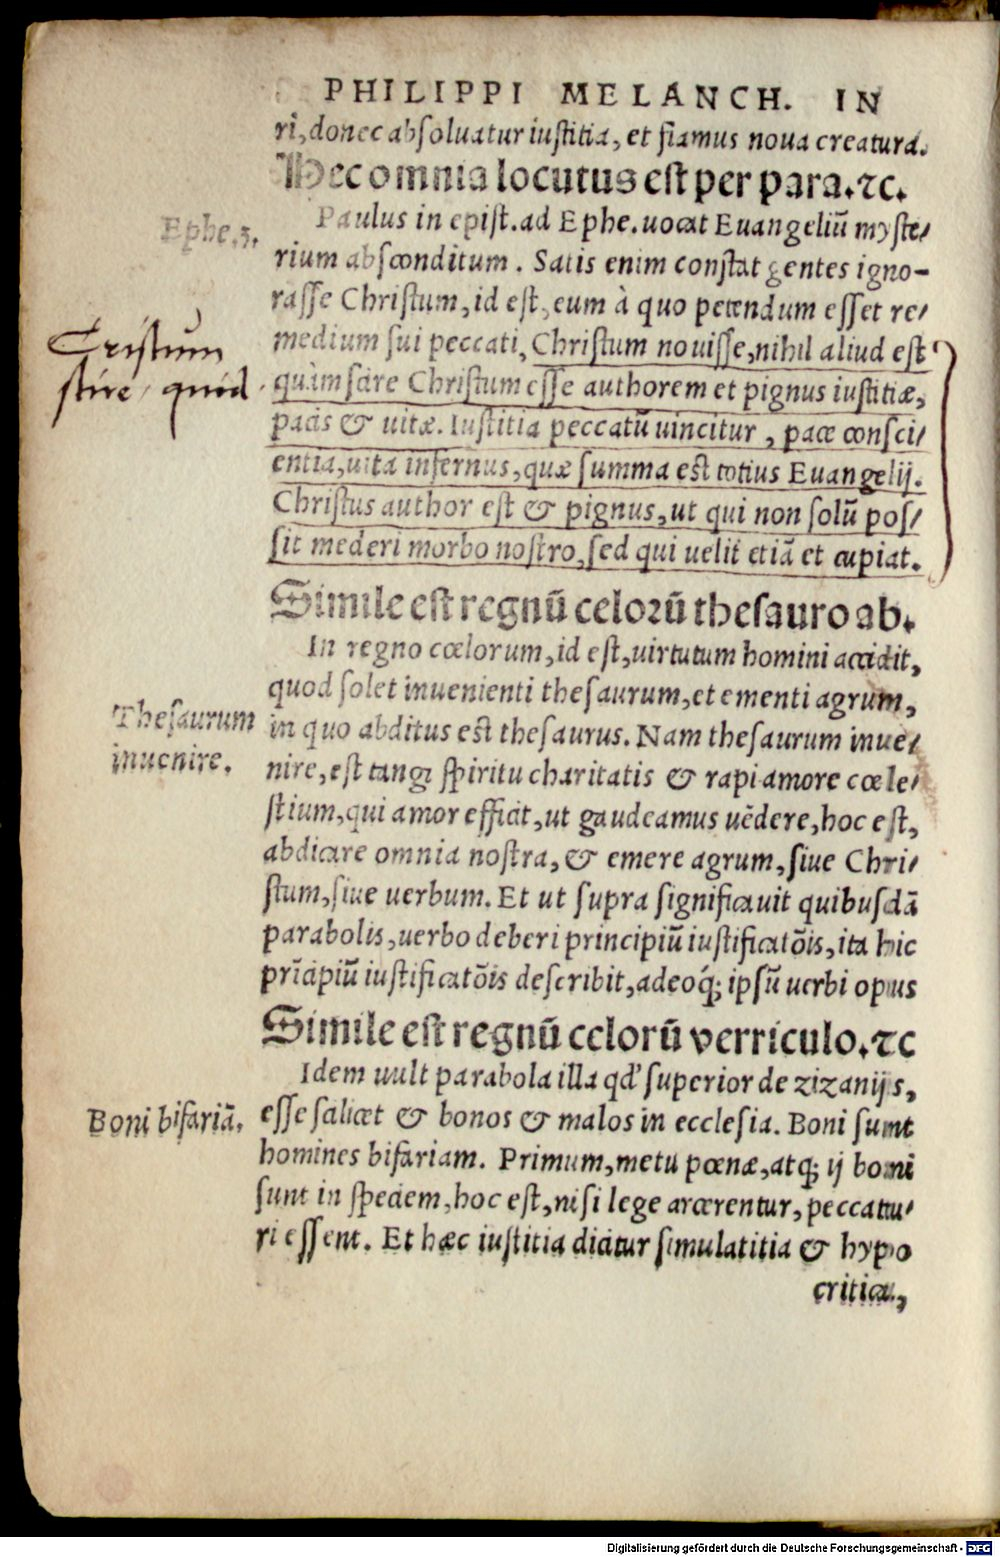 PHILIPPI MELANCH. IN
ri, donec absoluatur iustitia, et fiamus noua creatura.
Hec omnia locutus est per para. ⁊c.
Ephe. 3.
Paulus in epist. ad Ephe. uocat Euangeliũ myste/
rium absconditum. Satis enim constat gentes igno-
rasse Christum, id est, eum à quo petendum esset re/
medium sui peccati, Christum nouisse, nihil aliud est
Cristum
scire, quid
quàm scire Christum esse authorem et pignus iustitiæ,
pacis & uitæ. Iustitia peccatũ uincitur, pace consci/
entia, uita infernus, quæ summa est totius Euangelij.
Christus author est & pignus, ut qui non solũ pos/
sit mederi morbo nostro, sed qui uelit etiã et cupiat.
Simile est regnũ celorũ thesauro ab.
In regno cœlorum, id est, uirtutum homini accidit,
quod solet inuenienti thesaurum, et ementi agrum,
Thesaurum
inuenire.
in quo abditus est thesaurus. Nam thesaurum inue/
nire, est tangi spiritu charitatis & rapi amore cœle/
stium, qui amor efficit, ut gaudeamus uẽdere, hoc est,
abdicare omnia nostra, & emere agrum, siue Chri/
stum, siue uerbum. Et ut supra significauit quibusdã
parabolis, uerbo deberi principiũ iustificatõis, ita hic
prĩcipiũ iustificatõis describit, adeoq́; ipsũ uerbi opus
Simile est regnũ celorũ verriculo. ⁊c
Idem uult parabola illa qd' superior de zizanijs,
Boni bifariã.
esse salicet & bonos & malos in ecclesia. Boni sunt
homines bifariam. Primum, metu pœnæ, atq; ij boni
sunt in speciem, hoc est, nisi lege arcerentur, peccatu/
ri essent. Et hæc iustitia dicitur simulatitia & hypo
criticæ,